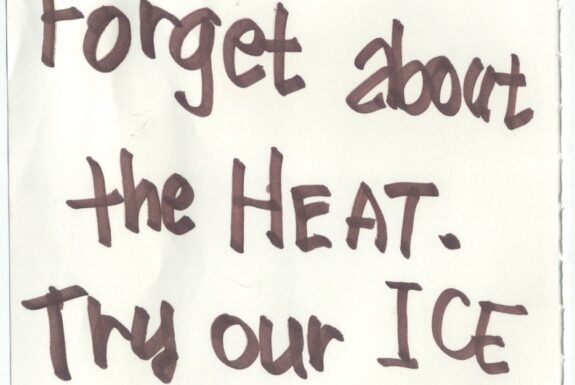 Forget about
the HEAT.
Try our ICE